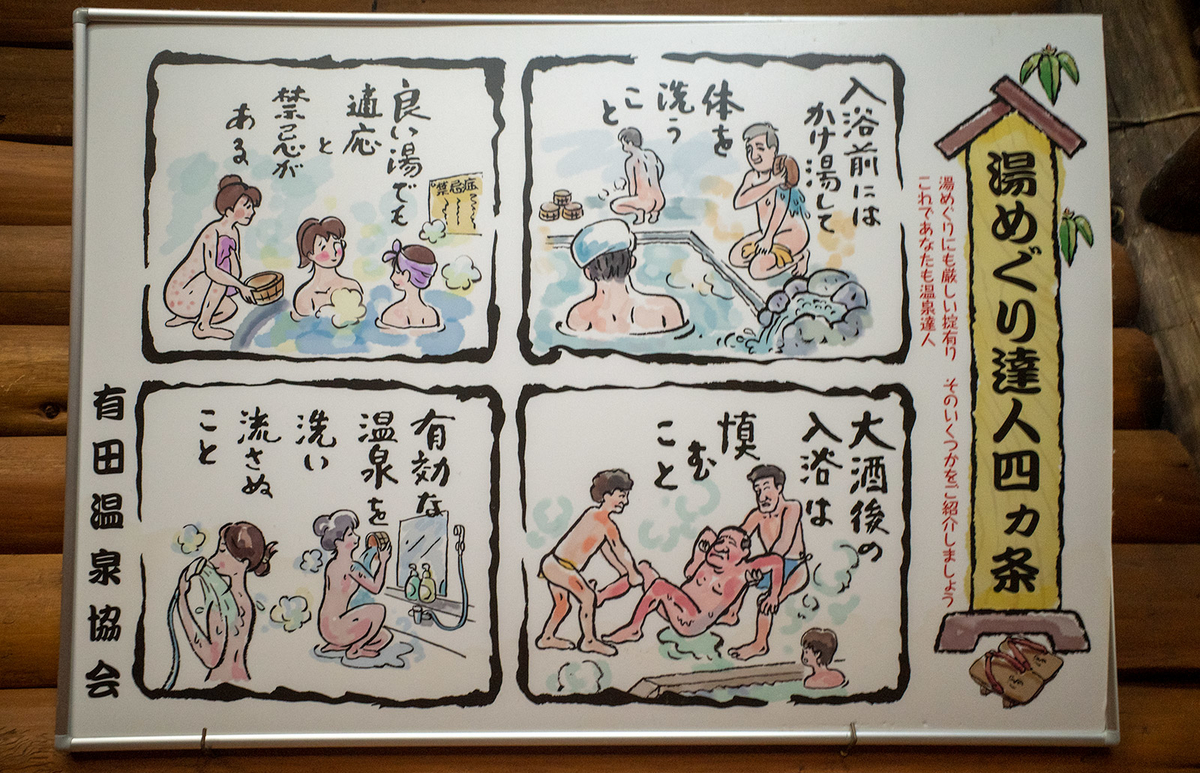 湯めぐり達人四ヵ条
湯めぐりにも厳しい掟有り　そのいくつかをご紹介しましょう
これであなたも温泉達人
入浴前には
かけ湯して
体を
洗う
こ
と
良い湯でも
適応
と
禁忌が
ある
禁忌症
大酒後の
入浴は
慎
む
こと
有効な
温泉を
洗い
流さぬ
こと
有田温泉協会